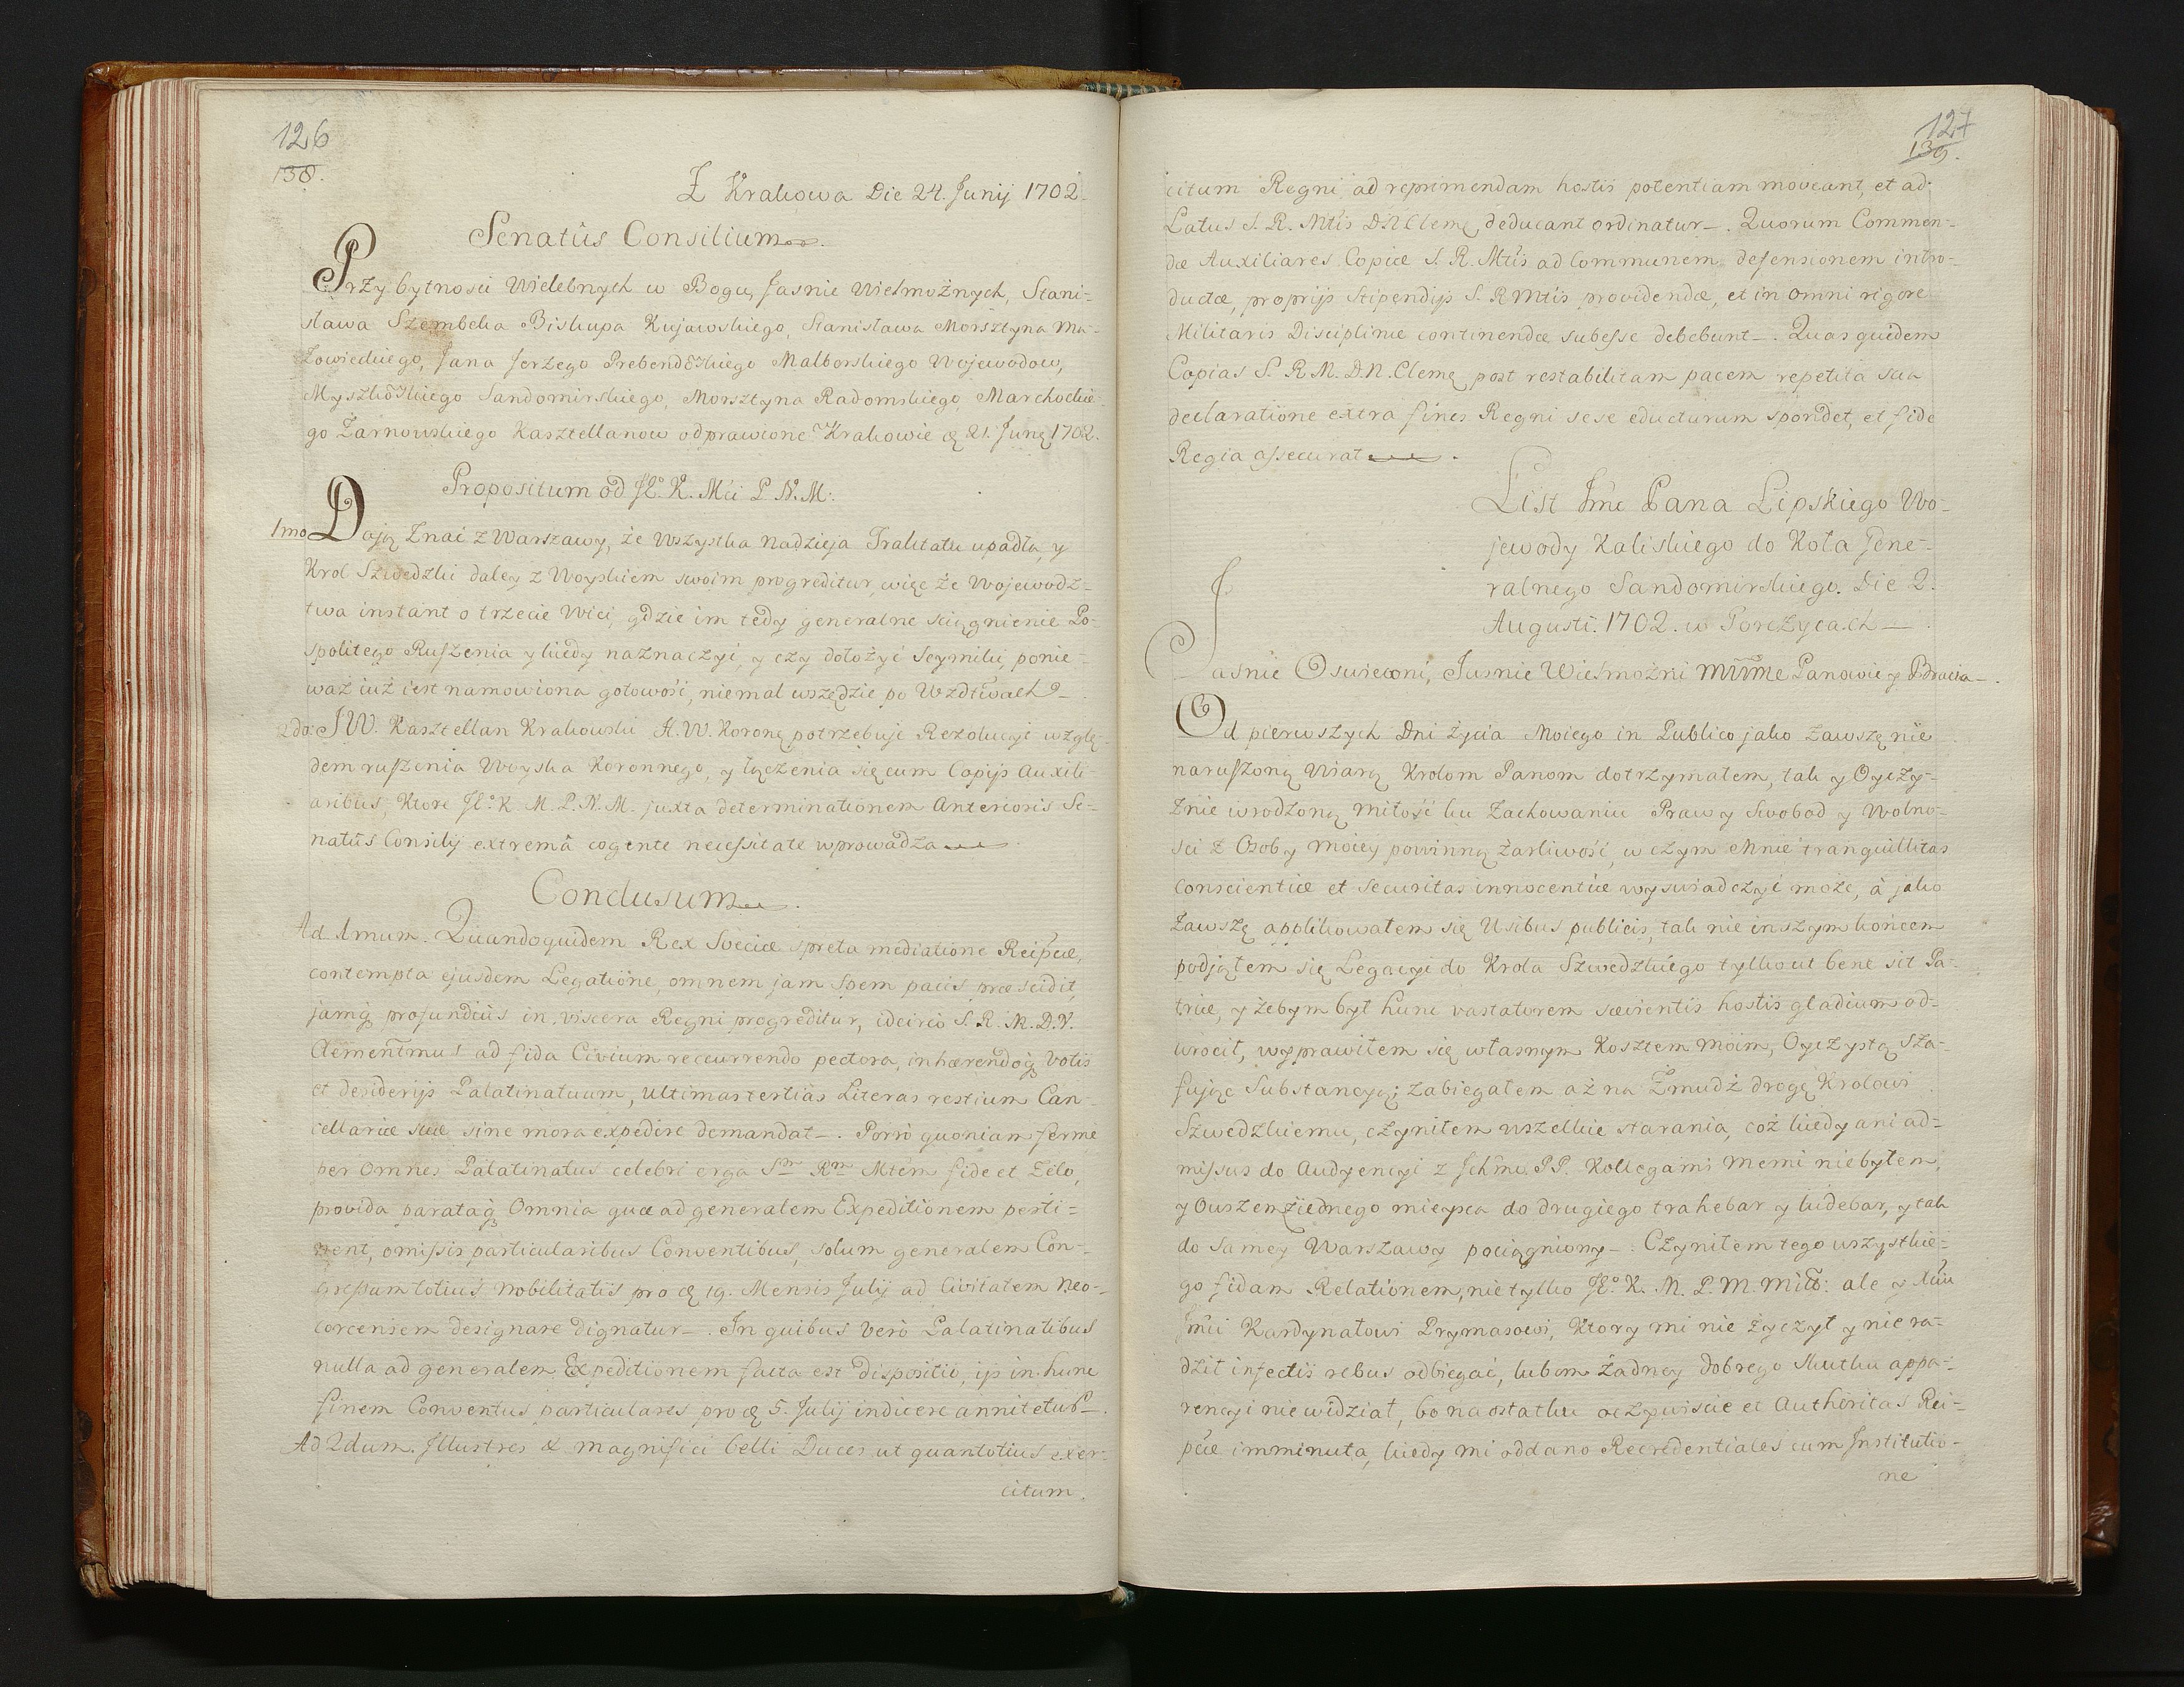 126
138.
Z Krakowa Die 24. Junij 1702.
Senatûs Consilium.
Przy bytnosci Wielebnych w Bogu, Jasnie Wielmożnych, Stani-
sława Szembeka Biskupa Kujawskiego, Stanisława Morsztyna Ma-
zowieckiego, Jana Jerzego Prebendoskiego Malborskiego Wojewodow,
Myszkoskiego Sandomirskiego, Morsztyna Radomskiego, Marchockie-
go Zarnowskiego Kasztellanow odprawione Krakowie 21. Juny 1702.
Propositum od JK. K. Mci P. N. M:
1mo Dają znać z Warszawy, że wszystka nadzieja Traktatu upadła, y
Krol Szwedzki daley z Woyskiem swoim progreditur, więc że Wojewodz-
twa instant o trzecie Wici, gdzie im tedy generalne sciągnienie Po-
spolitego Ruszenia y kiedy naznaczyć, y czy dołożyć Seymiki, ponie-
waż iuż iest namowiona gotowość, niemal wszędzie po Wzdtwach.
2do: JW. Kasztellan Krakowski H. W. Koronę potrzebuje Rezolucyi wzglę-
dem ruszenia Woyska Koronnego, y łączenia się cum Copijs Auxili-
aribus, Ktore JK. K. M. P. N. M. juxta determinationem Anterioris Se-
natûs Consilij extremâ cogente necessitate wprowadza.
Conclusum.
Ad 1mum. Quandoquidem Rex Sveciæ spreta mediatione Reipcæ,
contempta ejusdem Legatione, omnem jam spem pacis præscidit,
jamq profundiùs in viscera Regni progreditur, idcirco S. R. M. D. N.
Clementmus ad fida Civium recurrendo pectora, inhærendoq Votis
et desiderijs Palatinatuum, ultimas tertias Literas restium Can-
cellariæ suæ sine mora expedire demandat. Porrò quoniam fermè
per Omnes Palatinatus celebri erga Sm Rm Mtem fide et Zelo,
provida parataq Omnia quæ ad generalem Expeditionem perti-
nent, omissis particularibus Conventibus, solum generalem Con-
gressum totius Nobilitatis pro 19. Mensis Julij ad Civitatem Neo-
corcensem designare dignatur. In quibus verò Palatinatibus
nulla ad generalem Expeditionem facta est dispositio, ijs in hunc
finem Conventus particulares pro 5. Julij indicere annitetur.
Ad 2dum. Illustres & magnifici belli Duces ut quantotius exer-
citum.
127
139.
citum Regni ad reprimendam hostis potentiam moveant, et ad
Latus S. R. Mtis D N Cleme deducant ordinatur. Quorum Commen-
dæ Auxiliares Copiæ S. R. Mtis ad communem defensionem intro-
ductæ, proprijs Stipendijs S. R Mtis providendæ, et in omni rigore
Militaris Disciplinæ continendæ subesse debebunt. Quas quidem
Copias S. R. M. D. N. Cleme post restabilitam pacem repetita sua
declaratione extra fines Regni sese educturum spondet, et fide
Regia assecurat.
List Jmc Pana Lipskiego Wo-
jewody Kaliskiego do Koła Jene-
ralnego Sandomirskiego. Die 2.
Augusti. 1702. w Porczycach
Jasnie Oswieconi, Jasnie Wielmożni Mwme Panowie y Bracia.
Od pierwszych Dni życia Moiego in Publico jako zawszę nie
naruszoną wiarę Krolom Panom dotrzymałem, tak y Oyczy-
znie wrodzoną miłość ku Zachowaniu Praw y Swobod y Wolno-
sci z Osoby moiey powinną żarliwość, w czym Mnie tranquillitas
conscientiæ et securitas innocentiæ wyswiadczyć może, á jako
zawszę applikowałem się Usibus publicis, tak nie inszym końcem
podjąłem się Legacyi do Krola Szwedzkiego tylko ut bene sit Pa-
triæ, y żebym był hunc vastatorem sævientis hostis gladium od-
wrocił, wyprawiłem się własnym Kosztem moim, Oyczystą sza-
fując Substancyą; zabiegałem aż na Zmudź drogę Krolowi
Szwedzkiemu, czyniłem wszelkie starania, coż kiedy ani ad-
missus do Audyencyi z Jchmc. PP. Kollegami memi niebyłem,
y Owszem ziednego mieysca do drugiego trahebar y ludebar, y tak
do samey Warszawy pociągniony. Czyniłem tego wszystkie-
go fidam Relationem, nie tylko JK. K. M. P. M. Miło: ale y Xciu
Jmci Kardynałowi Prymasowi, Ktory mi nie życzył y nie ra-
dził infectis rebus odbiegać, lubom żadney dobrego skutku appa-
rencyi nie widział, bo na ostatku oczywiscie et Authoritas Rei-
pcæ imminuta, kiedy mi oddano Recredentiales cum Institutio-
ne